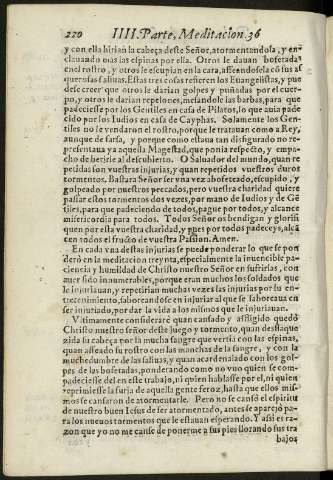 220 IIII. Parte, Meditacion. 36
y con ella hirian la cabeça deste Señor, atormentandosa, y en-
clauando mas las espinas por ella. Otros le dauan bofetadas
en el rostro, y otros le escupian en la cara, afeendosela cõ sus as
querosas saliuas. Estas tres cosas refieren los Euangelistas, y pue
dese creer que otros le darian golpes y puñadas por el cuer-
po, y otros le darian repelones, mesandole las barbas, para que
padeciesse por los Gentiles en casa de Pilatos, lo que auia pade
cido por los Iudios en casa de Cayphas. Solamente los Gen-
tiles no se vendaron el rostro, porque le tratauan como a Rey,
aunque de farsa, y porque como estaua tan disfigurado no re-
presentaua ya aquella Magestad, que ponia respecto, y empa-
cho de herirle al descubierto. O Saluador del mundo, quan re
petidas son vuestras injurias, y quan repetidos vuestros duros
tormentos. Bastara Señor ser vna vez abofeteado, escupido, y
golpeado por nuestros peccados, pero vuestra charidad quiere
passar estos tormentos dos vezes, por mano de Iudios y de Gẽ
tiles, para que padeciendo de todos, pague por todos, y alcance
misericordia para todos. Todos Señor os bendigan y glorifi
quen por esta vuestra charidad, y pues por todos padeceys, alcã
cen todos el fructo de vuestra Passion. Amen.
En cada vna destas injurias se puede ponderar lo que se pon
derò en la meditacion treynta, especialmente la inuencible pa-
ciencia y humildad de Christo nuestro Señor en sufrirlas, con
auer sido innumerables, porque eran muchos los soldados que
le injuriauan, y repetirian muchas vezes las injurias por su en-
tretenimiento, saboreandose en injuriar al que se saboreaua en
ser injuriado, por dar la vida a los mismos que le injuriauan.
Vltimamente considerarè quan cansado y affligido quedò
Christo nuestro señor deste juego y tormento, quan desflaque
zida su cabeça por la mucha sangre que vertia con las espinas,
quan affeado su rostro con las manchas de la sangre, y con la
muchedumbre de las saliuas, y quan acardenalado con los gol-
pes de las bofetadas, ponderando como no vuo quien se com-
padeciesse del en este trabajo, ni quien hablasse por el, ni quien
reprimiesse la furia de aquella gente feroz, hasta que ellos mis-
mos se cansaron de atormentarle. Pero no se cansò el espiritu
de nuestro buen Iesus de ser atormentado, antes se aparejò pa-
ra los nueuos tormentos que le estauan esperando. Y assi es ra-
zon que yo no me canse de ponerme a sus pies llorando sus tra
bajos